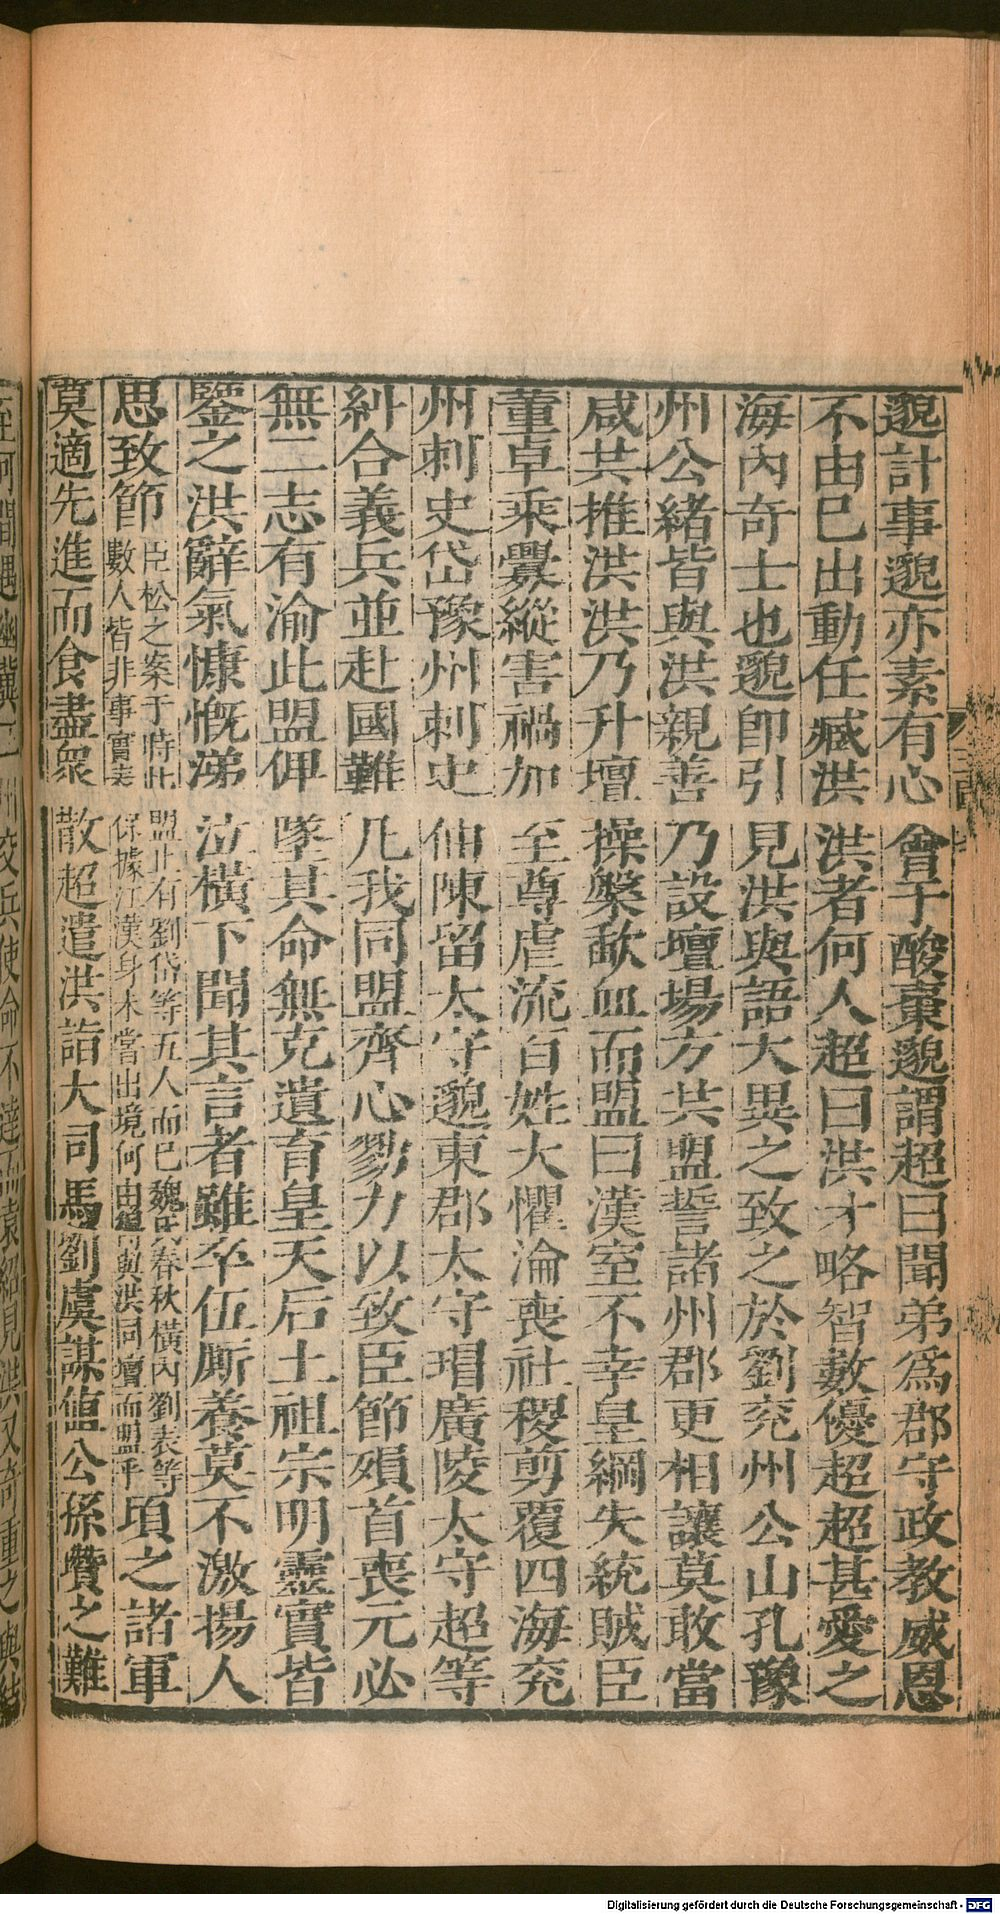 邈計事邈亦素有心會于酸棗邈謂超曰聞弟爲郡守政教威恩
不由已出動任臧洪洪者何人超曰洪才略智數優超超甚愛之
海內奇士也邈卽引見洪與語大異之致之於劉兖州公山孔豫
州公緒皆與洪親善乃設壇場方共盟誓諸州郡更相讓莫敢當
咸共推洪洪乃升壇操槃歃血而盟曰漢室不幸皇綱失統賊臣
董卓乘釁縱害禍加至尊虐流百姓大懼淪喪社稷剪覆四海兖
州刺史岱豫州刺史伷陳留太守邈東郡太守瑁廣陵太守超等
糾合義兵並赴國難凡我同盟齊心勠力以致臣節殞首喪元必
無二志有渝此盟俾墜其命無克遺育皇天后土祖宗明靈實皆
鑒之洪辭氣慷慨涕泣橫下聞其言者雖卒伍厮養莫不激揚人
思致節臣松之案于時此盟止有劉岱等五人而已魏氏春秋橫內劉表等
數人皆非事實表保據江漢身未嘗出境何由得與洪同壇而盟乎項之諸軍
莫適先進而食盡衆散超遣洪詣大司馬劉虞謀值公孫瓚之難
州交兵使命不達而袁紹見洪又奇重之與結
Digitalisierung gefördert durch die Deutsche Forschungsgemeinschaft - DFG